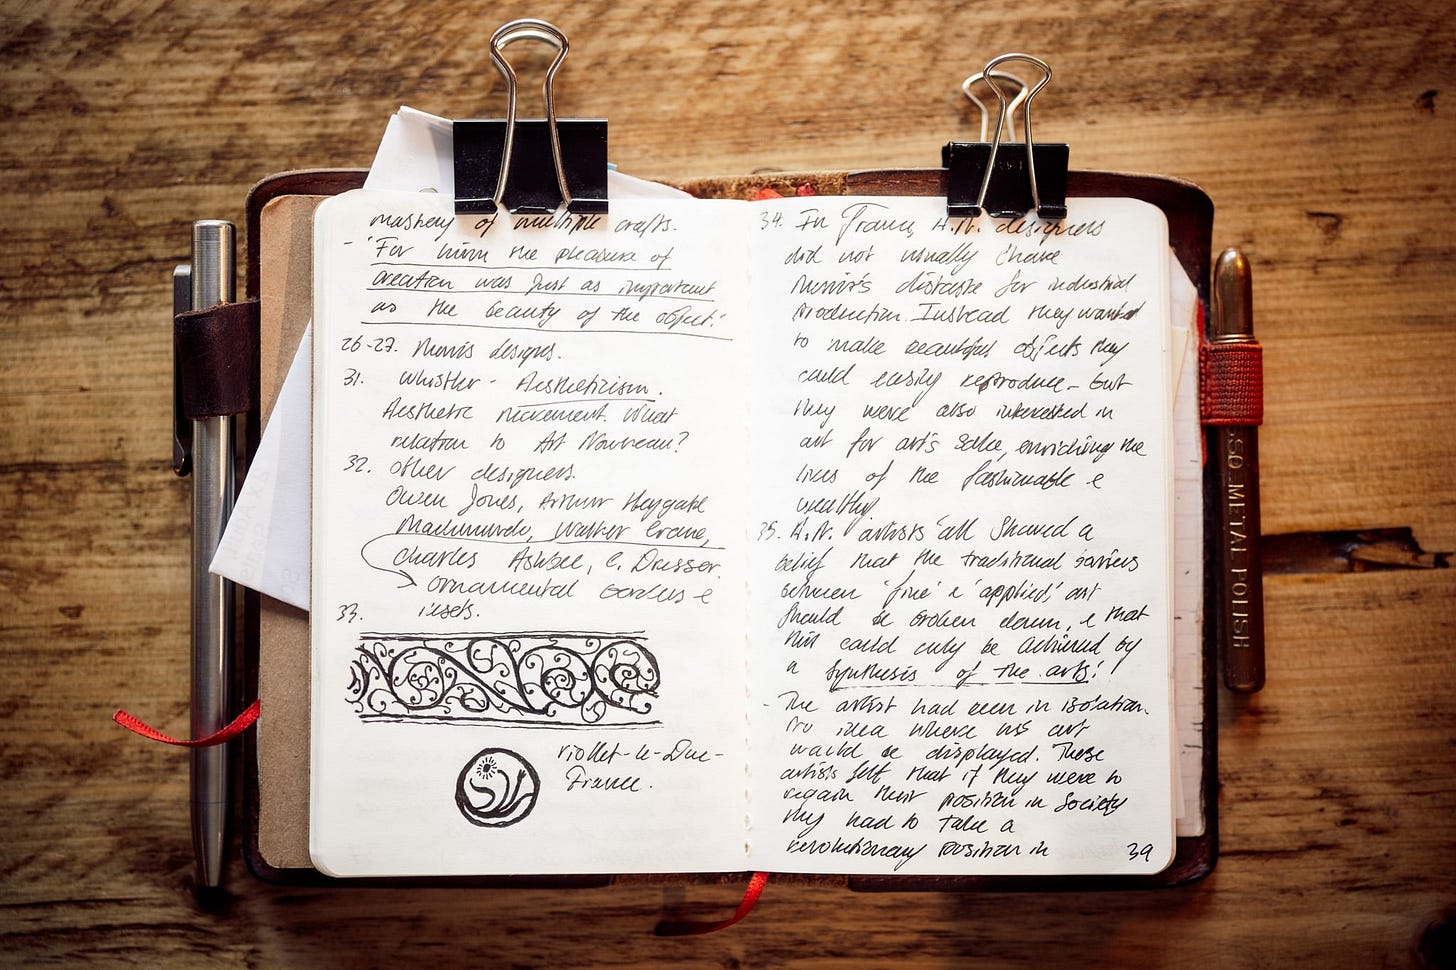 mastery of multiple crafts.
- 'For him the pleasure of
creation was just as important
as the beauty of the object.'
26-27. Morris designs.
31. Whistler - Aestheticism.
Aesthetic movement. What
relation to Art Nouveau?
32. Other designers.
Owen Jones, Arthur Heygate
Mackmurdo, Walter Crane,
Charles Ashbee, C. Dresser.
ornamental borders &
33. insets.
Viollet-le-Duc-
France.
34. In France, A.N. designers
did not usually share
Morris's distaste for industrial
production. Instead they wanted
to make beautiful objects they
could easily reproduce - but
they were also interested in
art for art's sake, enriching the
lives of the fashionable &
wealthy.
35. A.N. artists 'all shared a
belief that the traditional barriers
between 'fine' & 'applied' art
should be broken down, & that
this could only be achieved by
a synthesis of the arts.'
- The artist had been in isolation.
No idea where his art
would be displayed. These
artists felt that if they were to
regain their position in society
they had to take a
revolutionary position in
39
SQ. METAL POLISH